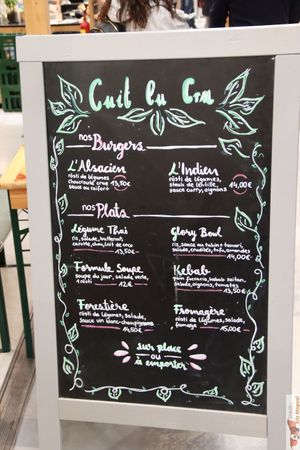 Cuit lu Cru
nos Burgers
L'Alsacien
rösti de légumes,
choucroute crue 13,50€
sauce au raifort
L'Indien
rösti de légumes,
steak de lentille, 14,00€
sauce curry, oignons
nos Plats
Légume Thaï
riz, salade, butternut,
carotte, dhn, lait de coco
13,50€
Glory Bowl
riz, sauce au tahin + tamari,
salade, crudités, tofu, amandes
14,00€
Formule Soupe
soupe du jour, salade verte,
1 rösti 12€
Kebab
pain focaccia, kebab seitan,
salade, oignons, tomates
13,50€
Forestière
rösti de légumes, salade,
sauce vin blanc-champignons
14,50€
Fromagère
rösti de légumes, salade,
fromage 15,00€
sur place
ou
à emporter